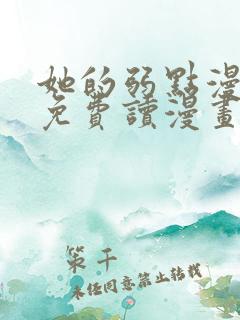 她的弱點漫
免費讀漫畫
策千
未经同意禁止转载